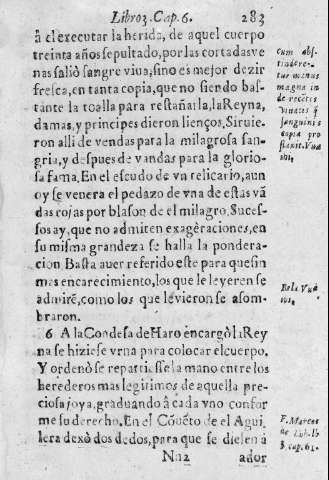 Libro 3. Cap. 6. 283
â el executar la herida, de aquel cuerpo
treinta años sepultado, por las cortadas ve
nas saliò sangre viua, sino es mejor dezir
fresca, en tanta copia, que no siendo bas-
tante la toalla para restañarla, la Reyna,
damas, y principes dieron lienços. Siruie-
ron alli de vendas para la milagrosa san-
gria, y despues de vandas para la glorio-
sa fama. En el escudo de vn relicario, aun
oy se venera el pedazo de vna de estas vã
das rojas por blason de el milagro. Suces-
sos ay, que no admiten exageraciones, en
su misma grandeza se halla la pondera-
cion. Basta auer referido este para que sin
mas encarecimiento, los que le leyeren se
admirẽ, como los que le vieron se asom-
braron.
6 A la Condesa de Haro encargò la Rey
na se hiziese vrna para colocar el cuerpo.
Y ordenò se repartiesse la mano entre los
herederos mas legitimos de aquella pre-
ciosa joya, graduando â cada vno confor
me su derecho. En el Cõuẽto de el Agui
lera dexò dos dedos, para que se diesen â
Nn2 ador
Cum abs-
tinderetur manus
magna in
de recẽtes
sanguinis
copia pro
fluxit. Vua
Bela Vua
F. Marcos
de Lisb. li
3. cap. 61.